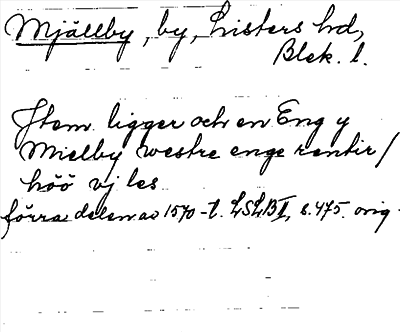 Mjällby, by, Listers hd,
Blek. l.
Jtem ligger och en Eng y
Mielby westre enge rentir /
höö vj les
förra delen av 1570-t. LSLBI, s. 475. orig.